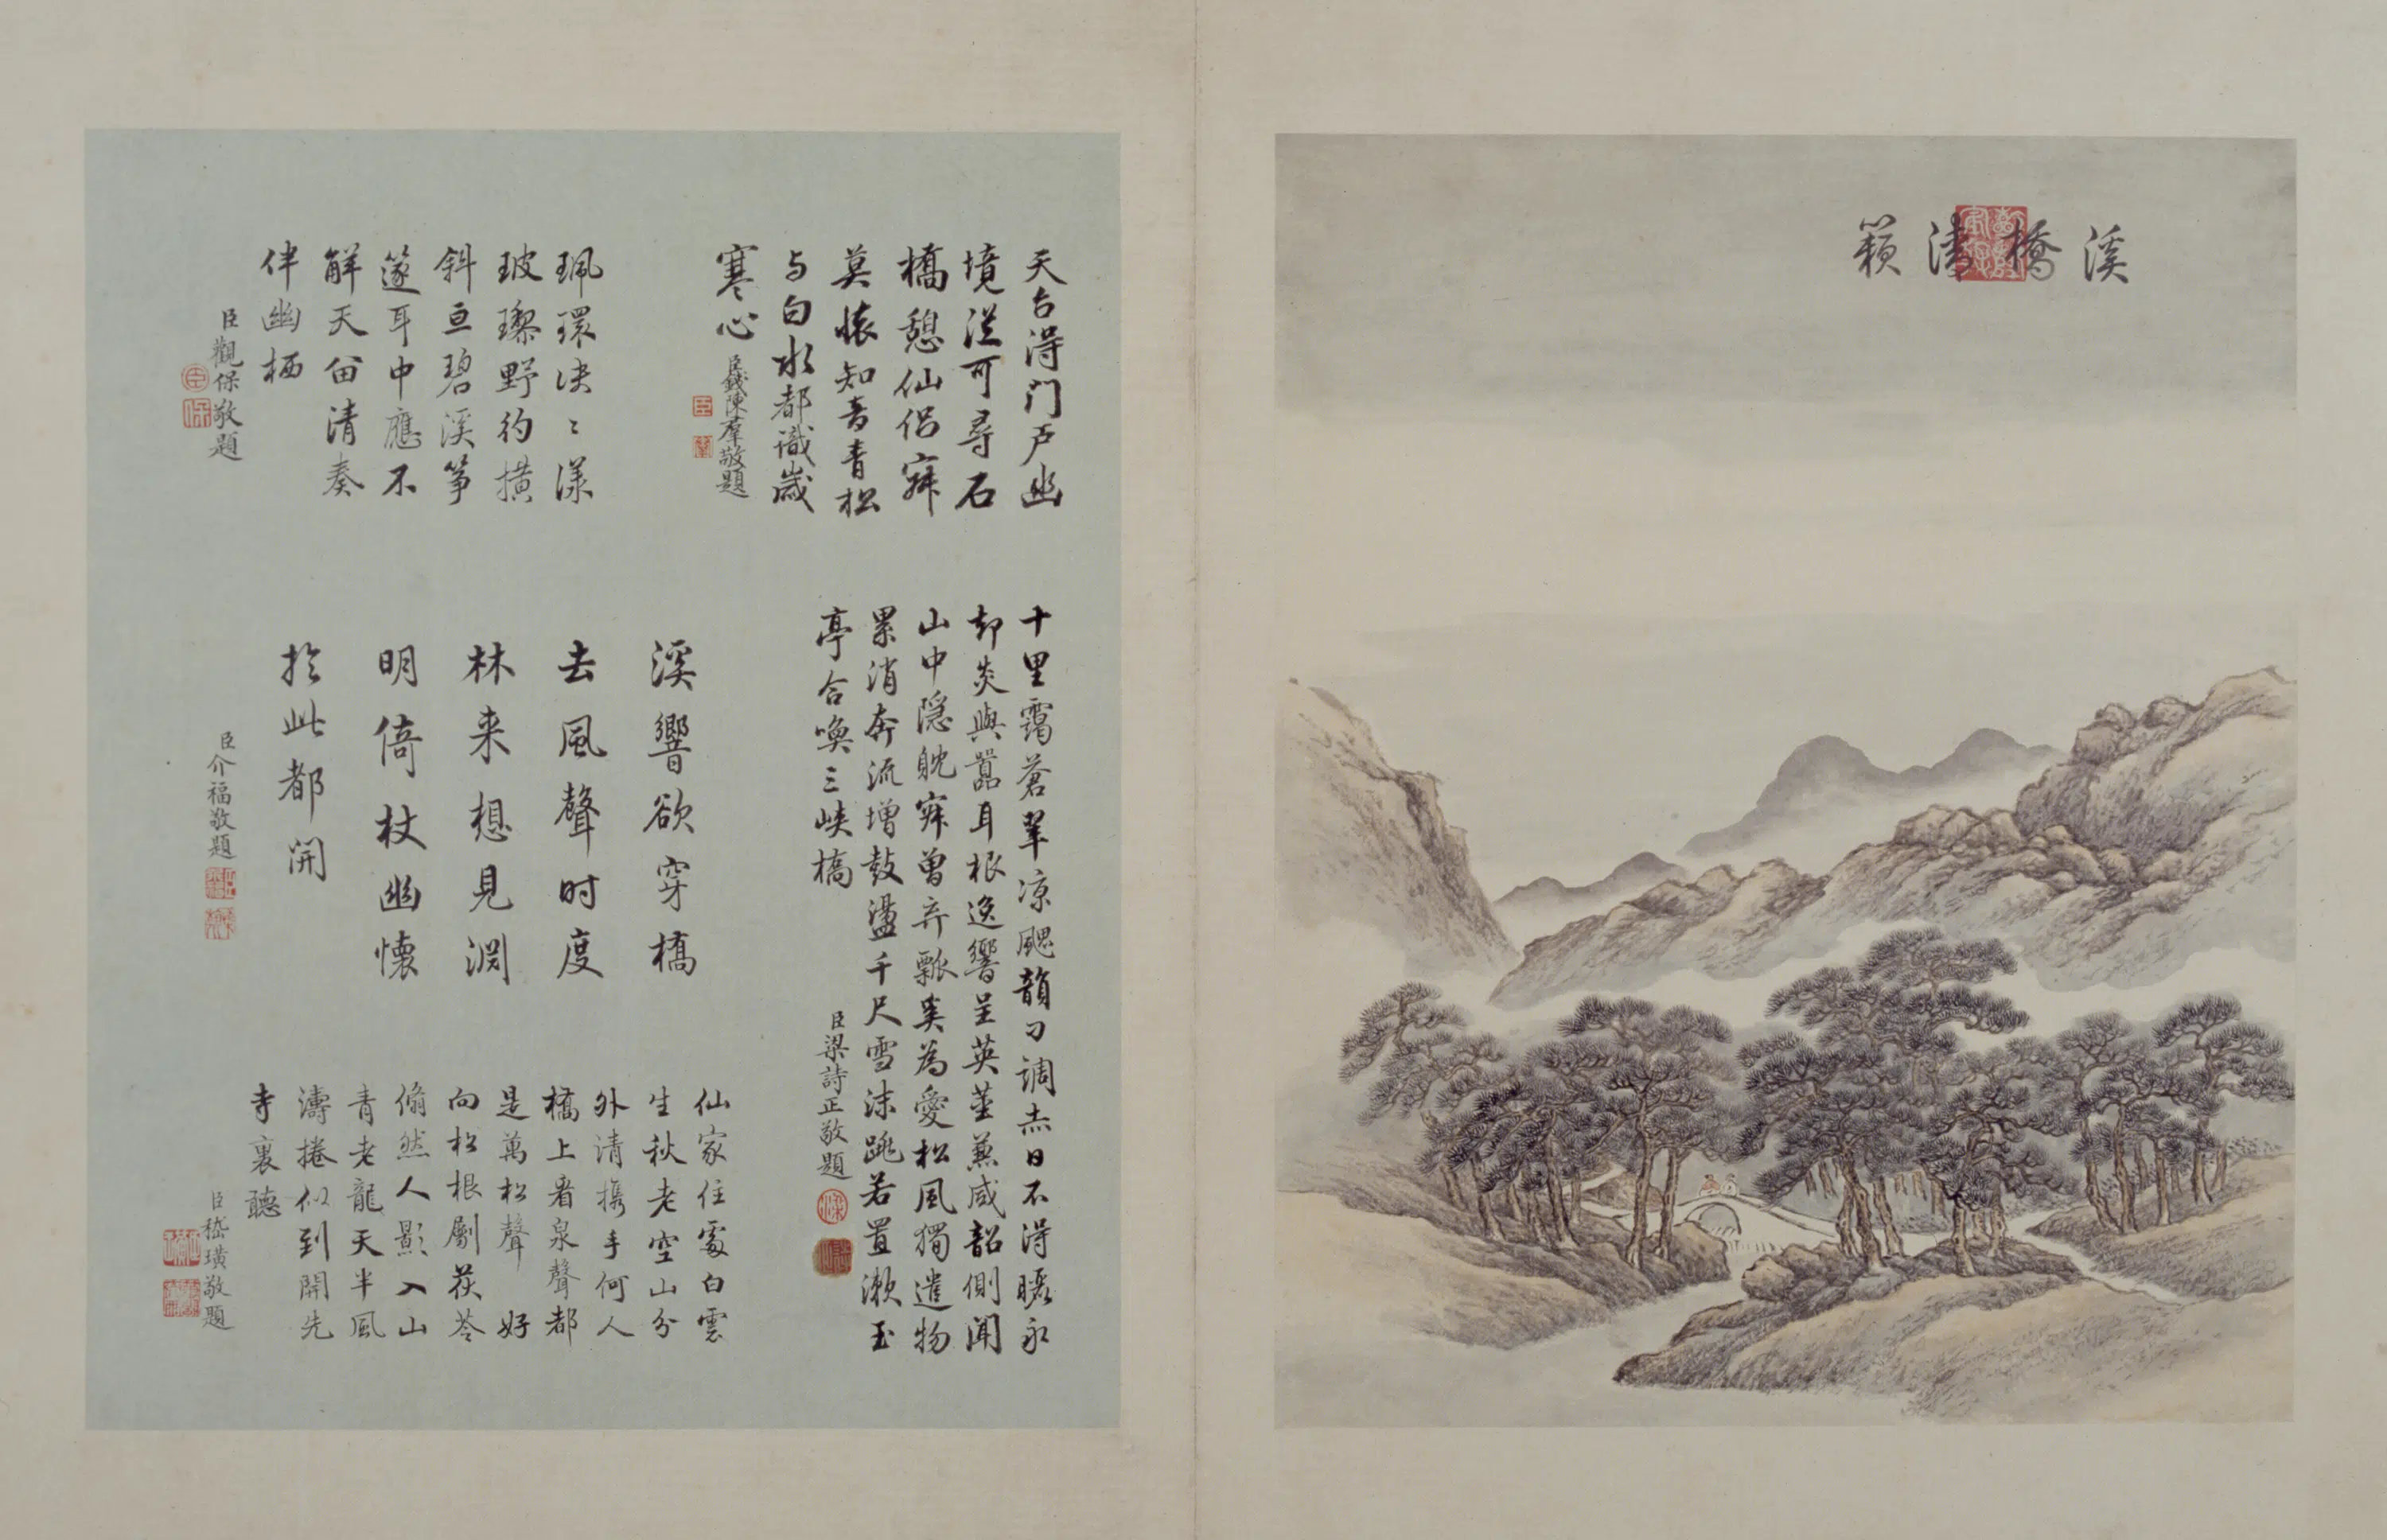 溪橋清籟
天台得门户幽
境從可尋石
橋憩仙侶寂
莫懷知音青松
与白水都識歲
寒心
臣錢陳羣敬題
珮環決〻漾
玻瓈野彴横
斜亘碧溪箏
篴耳中應不
解天留清奏
伴幽栖
臣觀保敬題
十里靄蒼翠凉颸韻刁調赤日不得曬永
却炎與囂耳根逸響呈英莖兼咸韶側聞
山中隱躭寂曽弃瓢奚為愛松風獨遣物
累消奔流增鼓盪千尺雪沫跳若置漱玉
亭合喚三峽橋
臣梁詩正敬題
溪響欲穿橋
去風聲时度
林来想見淵
明倚杖幽懷
於此都開
臣介福敬題
仙家住處白雲
生秋老空山分
外清携手何人
橋上看泉聲都
是萬松聲 好
向松根劚茯苓
翛然人影入山
青老龍天半風
濤捲似到開先
寺裏聽
臣嵇璜敬題